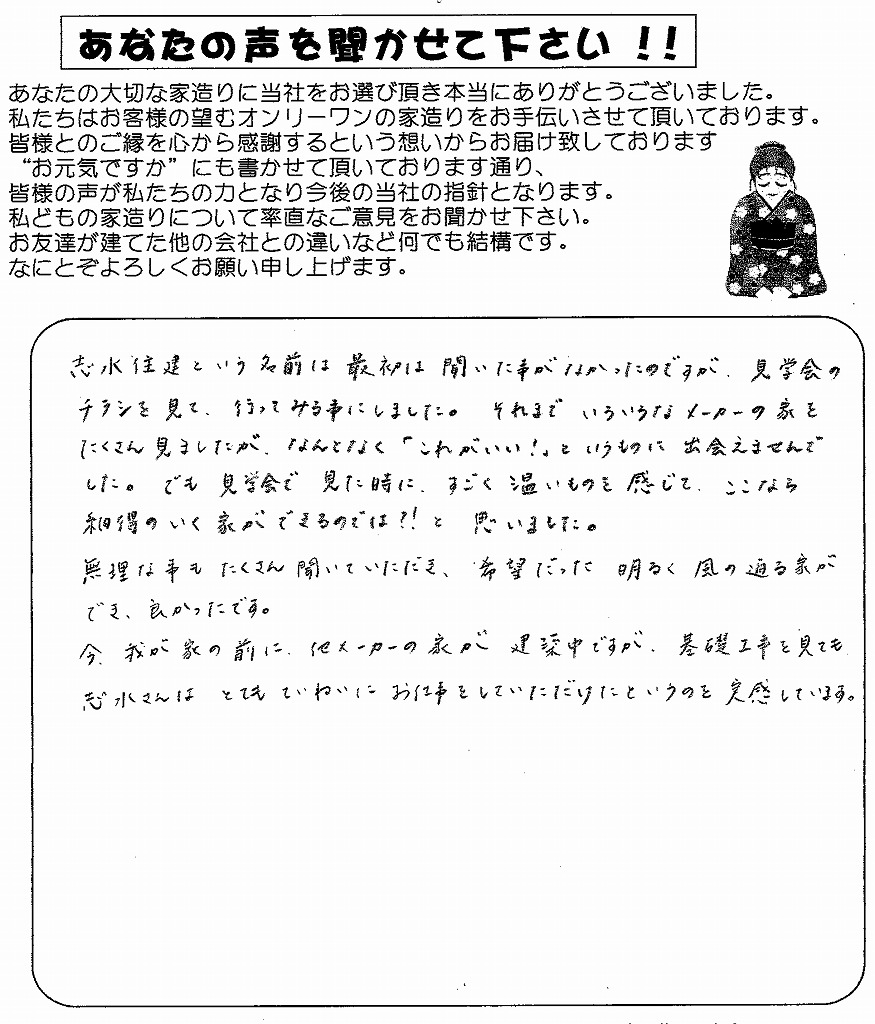 あなたの声を聞かせて下さい！！
あなたの大切な家造りに当社をお選び頂き本当にありがとうございました。
私たちはお客様の望むオンリーワンの家造りをお手伝いさせて頂いております。
皆様とのご縁を心から感謝するという想いからお届け致しております
“お元気ですか”にも書かせて頂いております通り、
皆様の声が私たちの力となり今後の当社の指針となります。
私どもの家造りについて率直なご意見をお聞かせ下さい。
お友達が建てた他の会社との違いなど何でも結構です。
なにとぞよろしくお願い申し上げます。
志水住建という名前は最初は聞いた事がなかったのですが、見学会の
チラシを見て、行ってみる事にしました。それまでいろいろなメーカーの家を
たくさん見ましたが、なんとなく「これがいい!」というものに出会えませんで
した。でも見学会で見た時に、すごく温いものを感じて、ここなら
納得のいく家ができるのでは?!と思いました。
無理な事もたくさん聞いていただき、希望だった明るく風の通る家が
でき、良かったです。
今、我が家の前に、他メーカーの家が建築中ですが、基礎工事を見ても、
志水さんはとてもていねいにお仕事をしていただけたというのを実感しています。